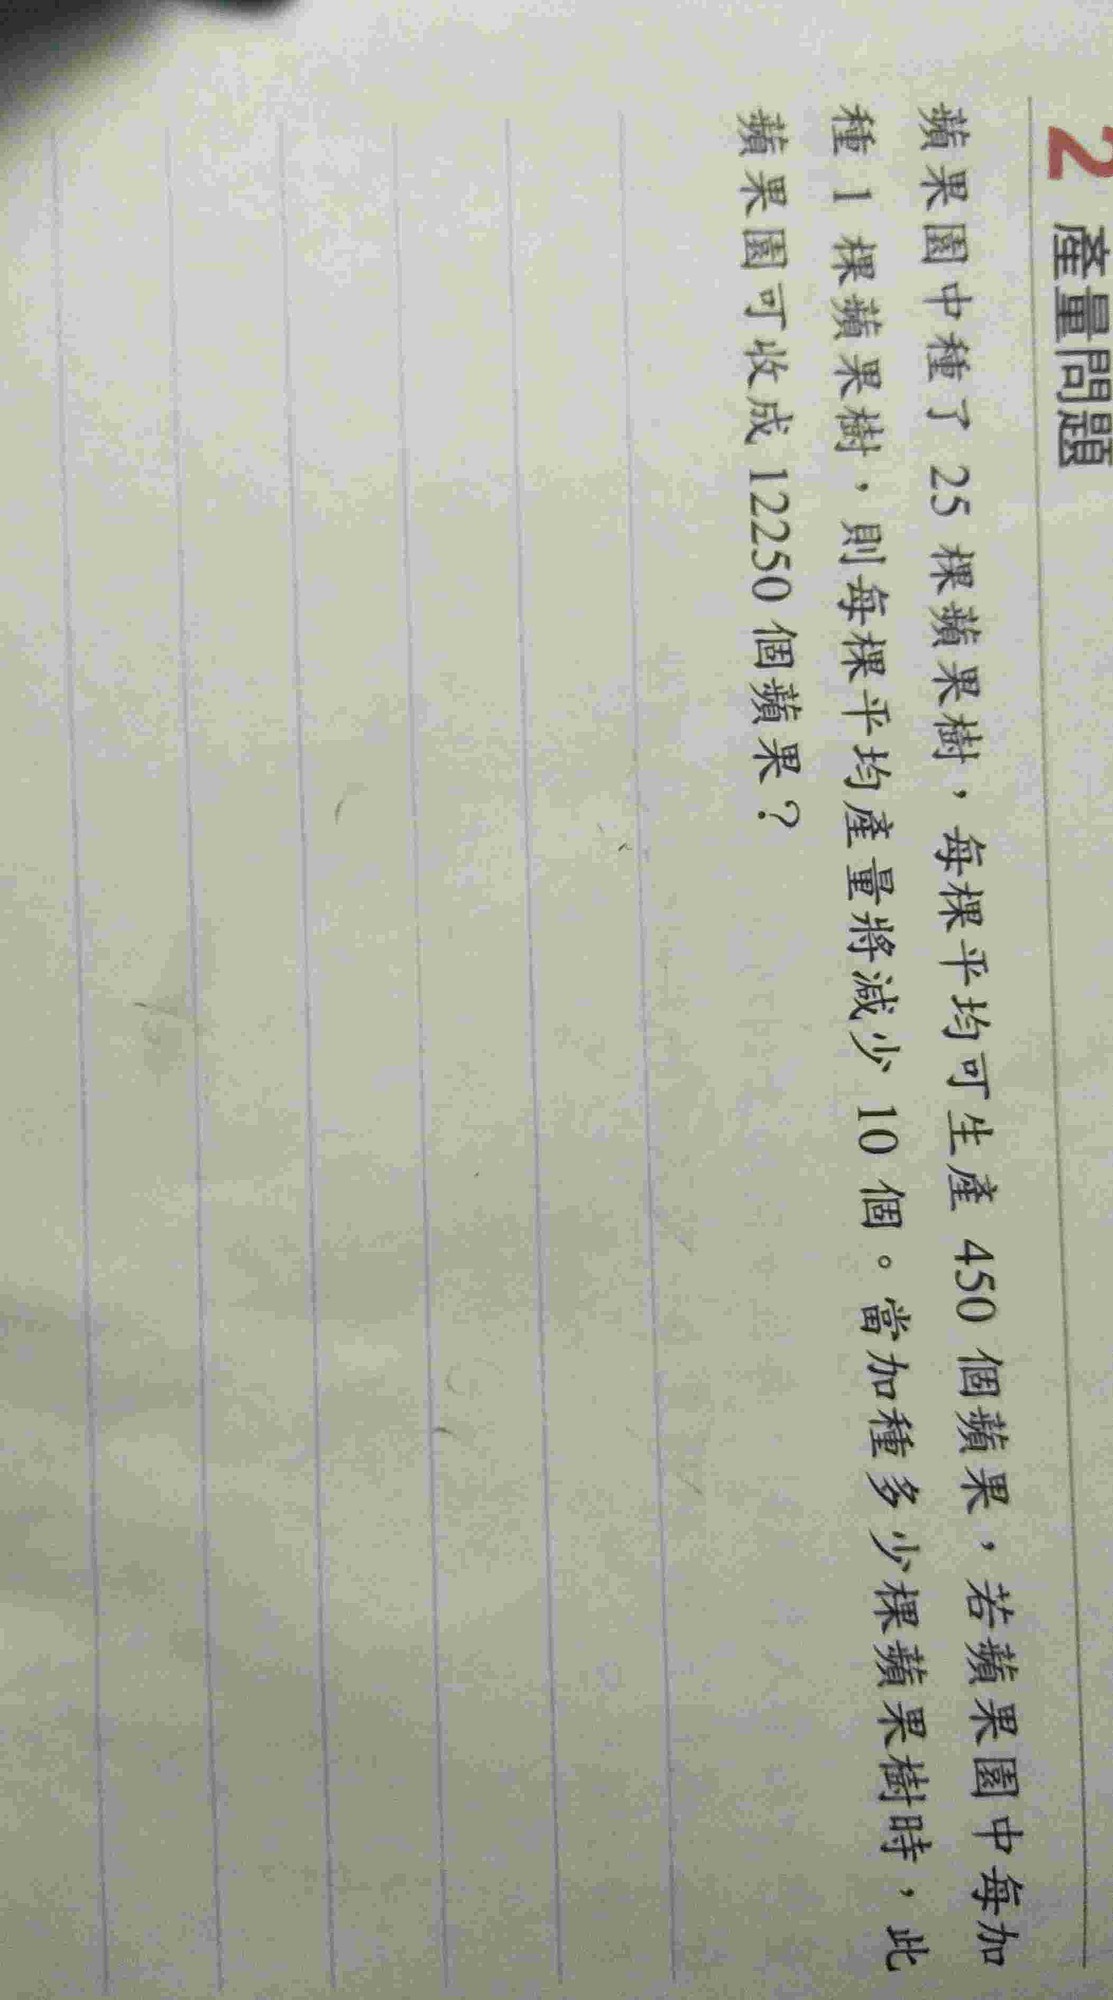 2 產量問題
蘋果園中種了 25 棵蘋果樹，每棵平均可生產 450 個蘋果，若蘋果園中每加
種 1 棵蘋果樹，則每棵平均產量將減少 10 個。當加種多少棵蘋果樹時，此
蘋果園可收成 12250 個蘋果？